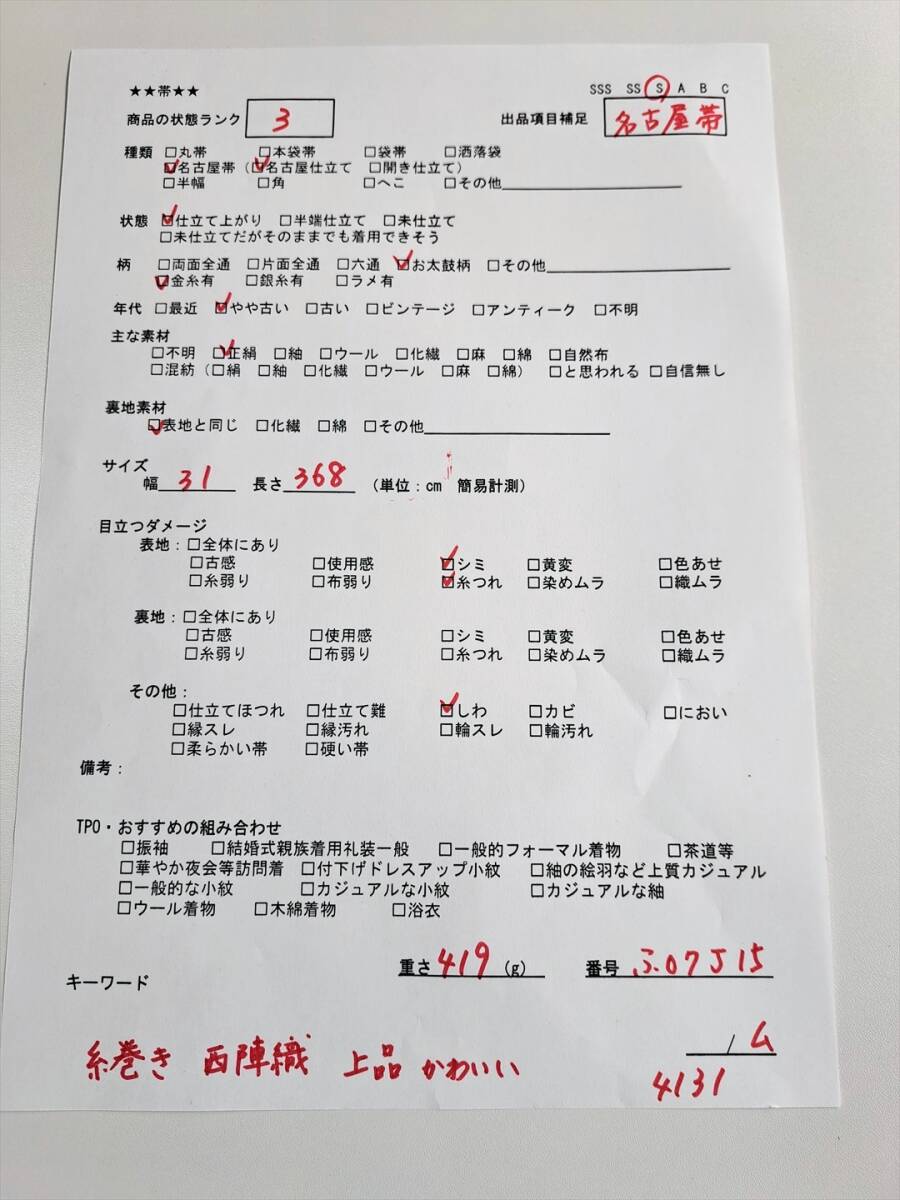 ★★帯★★
SSS SS S A B C
商品の状態ランク 3 出品項目補足 名古屋帯
種類 □丸帯 □本袋帯 □袋帯 □洒落袋
☑名古屋帯(☑名古屋仕立て □開き仕立て)
□半幅 □角 □へこ □その他
状態 ☑仕立て上がり □半端仕立て □未仕立て
□未仕立てだがそのままでも着用できそう
柄 □両面全通 □片面全通 □六通 ☑お太鼓柄 □その他
☑金糸有 □銀糸有 □ラメ有
年代 □最近 ☑やや古い □古い □ビンテージ □アンティーク □不明
主な素材
□不明 ☑正絹 □紬 □ウール □化繊 □麻 □綿 □自然布
□混紡(□絹 □紬 □化繊 □ウール □麻 □綿) □と思われる □自信無し
裏地素材
☑表地と同じ □化繊 □綿 □その他
サイズ
幅 31 長さ 368 (単位:cm 簡易計測)
目立つダメージ
表地:□全体にあり
□古感 □使用感 ☑シミ □黄変 □色あせ
□糸弱り □布弱り ☑糸つれ □染めムラ □織ムラ
裏地:□全体にあり
□古感 □使用感 □シミ □黄変 □色あせ
□糸弱り □布弱り □糸つれ □染めムラ □織ムラ
その他:
□仕立てほつれ □仕立て難 ☑しわ □カビ □におい
□縁スレ □縁汚れ □輪スレ □輪汚れ
□柔らかい帯 □硬い帯
備考:
TPO・おすすめの組み合わせ
□振袖 □結婚式親族着用礼装一般 □一般的フォーマル着物 □茶道等
□華やか夜会等訪問着 □付下げドレスアップ小紋 □紬の絵羽など上質カジュアル
□一般的な小紋 □カジュアルな小紋 □カジュアルな紬
□ウール着物 □木綿着物 □浴衣
重さ 419 (g) 番号 ふ07J15
キーワード
糸巻き 西陣織 上品 かわいい
/ ム
4131